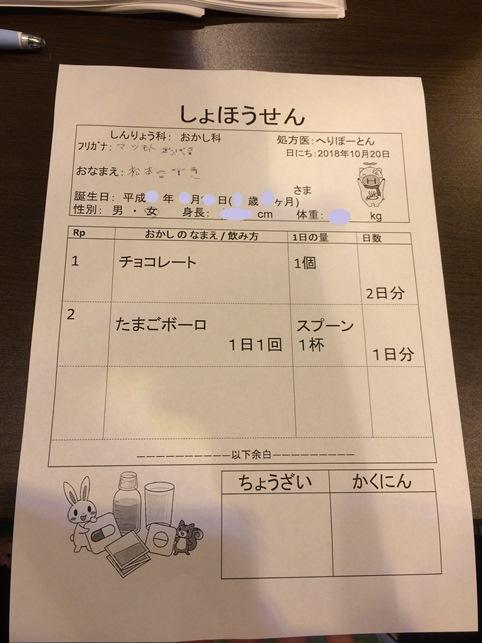 しょほうせん
しんりょう科: おかし科
処方医：へりぽーとん
フリガナ: マツモト
日にち：2018年10月20日
おなまえ: 松本
さま
誕生日: 平成 年 月 日( 歳 ヶ月)
性別: 男 ・ 女 身長: cm 体重: kg
Rp おかし の なまえ / 飲み方 1日の量 日数
1 チョコレート 1個
2日分
2 たまごボーロ スプーン
1日1回 1杯 1日分
ーーーーーーーーーー以下余白ーーーーーーーーー
ちょうざい かくにん